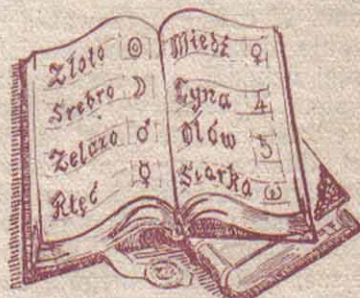 Złoto ☉
Srebro ☽
Żelazo ♂
Rtęć ☿
Miedź ♀
Cyna ♃
Ołów ♄
Siarka